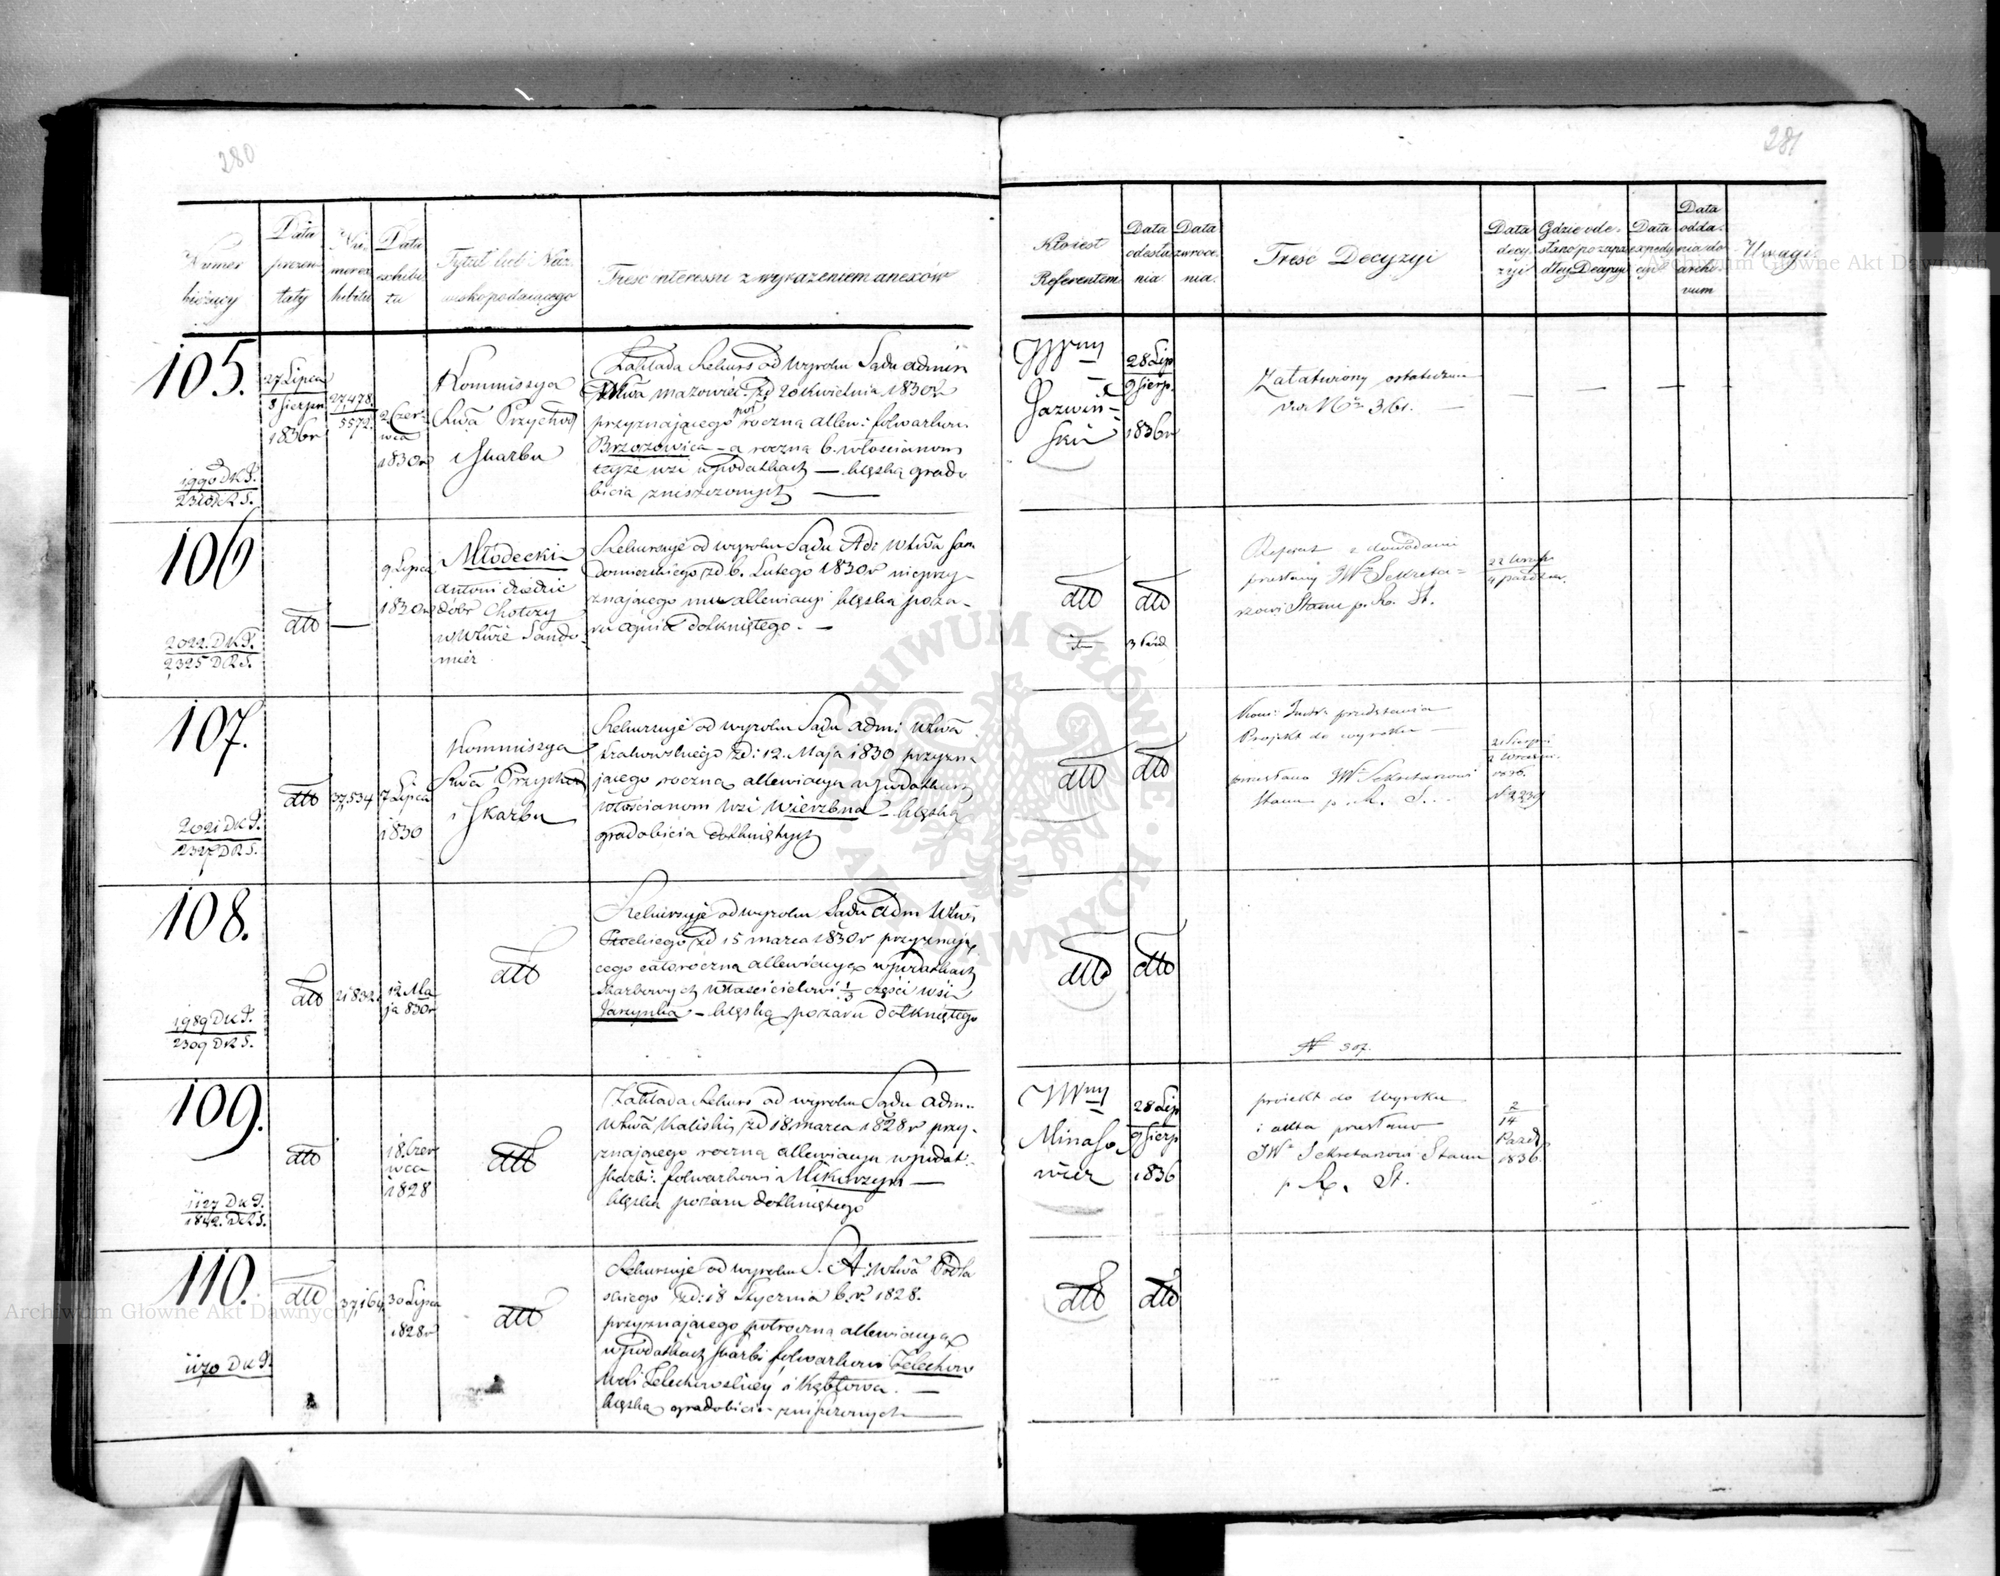 280
281
Numer bieżący
Data prezentaty
Numer exhibitu
Data exhibitu
Tytuł lub Nazwisko podaiącego
Treść interessu z wyrażeniem anexów
Kto iest Referentem
Data odesłania
Data zwrócenia
Treść Decyzyi
Data decyzyi
Gdzie odesłano po zapadłey Decyzyi
Data expedycyi
Data oddania do archivum
Uwagi
105.
1990 DKP.
2310 DRS.
27 Lipca
8 Sierpn
1836 r
27,478.
5572.
2 Czerwca
1830 r
Kommissya
Rwa Przychod
i Skarbu
Zakłada Rekurs od wyroku Sądu admin
Wtwa mazowiec. zd 20 kwietnia 1830 r
przyznaiącego pół roczną allew: folwarkowi
Brzozowica — a roczną 6. włościanom
teyże wsi w podatkach — klęską grado
bicia zniszczonych —
JWny
Jazwiń-
ski
28 Lip
9 Sierp.
1836 r
Załatwiony ostatecznie
vide Nr 361. —
106
2022. DKP.
2325 DRS.
dtto
—
9 Lipca
1830 r
Młodecki
Antoni dziedzic
dobr Chotczy
w Wtwie Sando-
mier
Rekursuje od wyroku Sądu Ad: Wtwa San
domierskiego zd 6. Lutego 1830 r nieprzy-
znaiącego mu allewiacyi klęską poża-
ru ognia dotkniętego. —
dtto
dtto
3 Paźd
Referat z dowodami
przesłany JW Sekreta-
rzowi Stanu p. R. St.
22 Wrześ
4 Paźdz.
107.
2021 DKP.
2324 DRS.
dtto
37,534
7 Lipca
1830
Kommissya
Rwa Przychod
i Skarbu
Rekursuje od wyroku Sądu adm: Wtwa
Krakowskiego zd: 12. Maja 1830 przyzna
jącego roczną allewiacyą w podatkach
włościanom wsi Wierzbna — klęską
gradobicia dotkniętych
dtto
dtto
przedstawia
Projekt do wyroku —
przesłano JW Sekretarzowi
Stanu p. R. S.
21 Sierpni
2 Wrześn.
1836.
N 2239
108.
1989 DKP.
2309 DRS.
dtto
21832.
12 Ma
ja 830 r
dtto
Rekursuje od wyroku Sądu adm Wtwa
Płockiego zd 15 marca 1830 r przyznają
cego całoroczną allewiacyą w podatkach
skarbowych właścicielowi ⅓ części wsi
Jarzynka — klęską pożaru dotkniętego
dtto
dtto
N 307.
109.
1127 DKP.
1842. DRS.
dtto
18. Czer
wca
1828
dtto
Zakłada Rekurs od wyroku Sądu adm.
Wtwa Kaliskie. zd 18 marca 1828 r przy-
znaiącego roczną allewiacyą w podat:
skarb: folwarkowi Mikorzyn —
klęską pożaru dotkniętego
JWny
Minaso-
wicz
28 Lip
9 Sierp
1836
proiekt do Wyroku
i akta przesłano
JW Sekretarzowi Stanu
p R. St.
2
14
Paźdz
1836.
110.
1170 DKP.
dtto
37,164
30 Lipca
1828 r
dtto
Rekursuje od wyroku S. A. Wtwa Podla
skiego zd: 18 Stycznia b.r. 1828.
przyznaiącego półroczną allewiacyą
w podatkach skarb: folwarkowi Zelechow
Woli Zelechowskiey i Kębłowa. —
klęską gradobicia zniszczonych —
dtto
dtto
ARCHIWUM GŁÓWNE AKT DAWNYCH
Archiwum Główne Akt Dawnych
Archiwum Główne Akt Dawnych